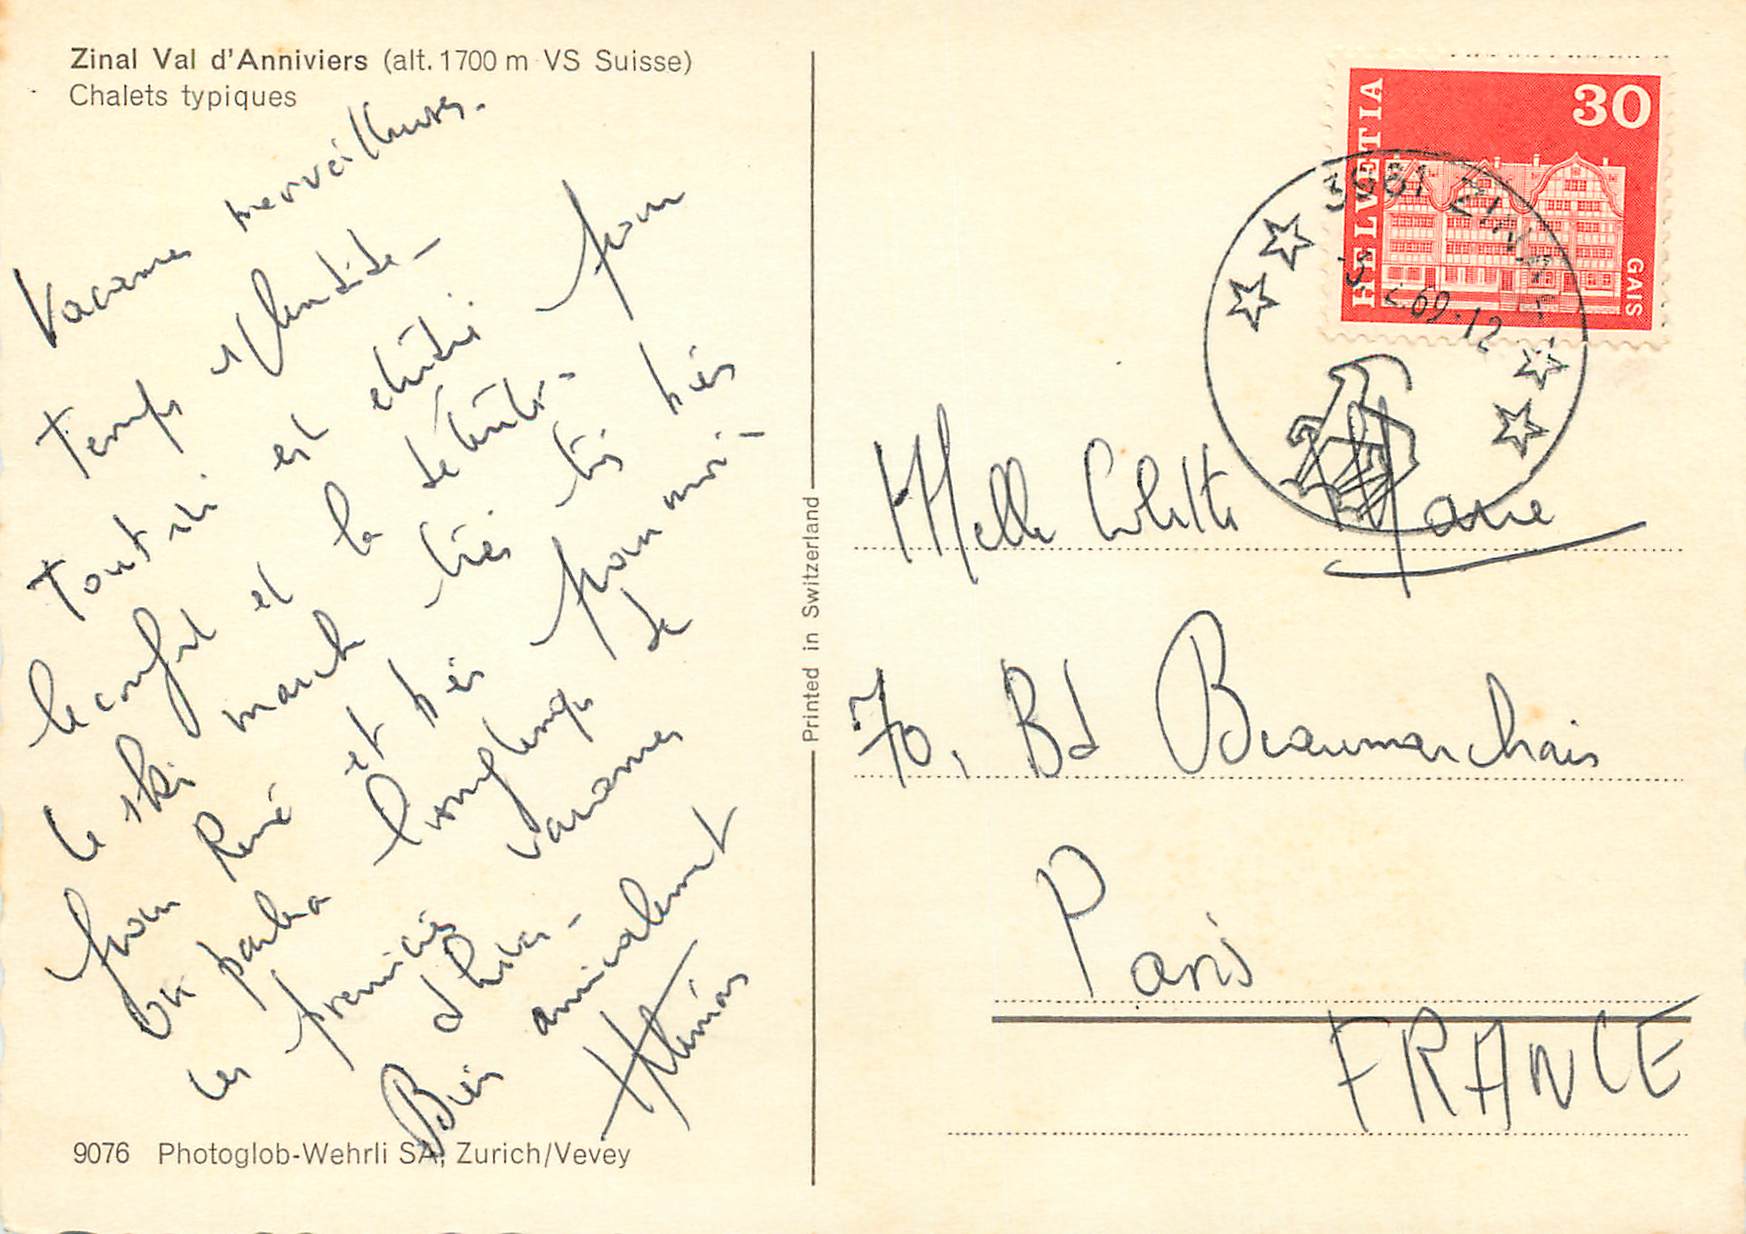 Zinal Val d'Anniviers (alt. 1700 m VS Suisse)
Chalets typiques
Vacances merveilleuses.
Temps splendide -
Tout ici est étudié pour
le confort et la
le ski marche très très bien
pour René et bien pour moi -
On parlera longtemps de
ces premières vacances
d'hiver -
Bien amicalement
Printed in Switzerland
9076 Photoglob-Wehrli SA, Zurich/Vevey
HELVETIA
30
GAIS
3961 ZINAL
2.69-12
Melle Colette Marie
70, Bd Beaumarchais
Paris
FRANCE